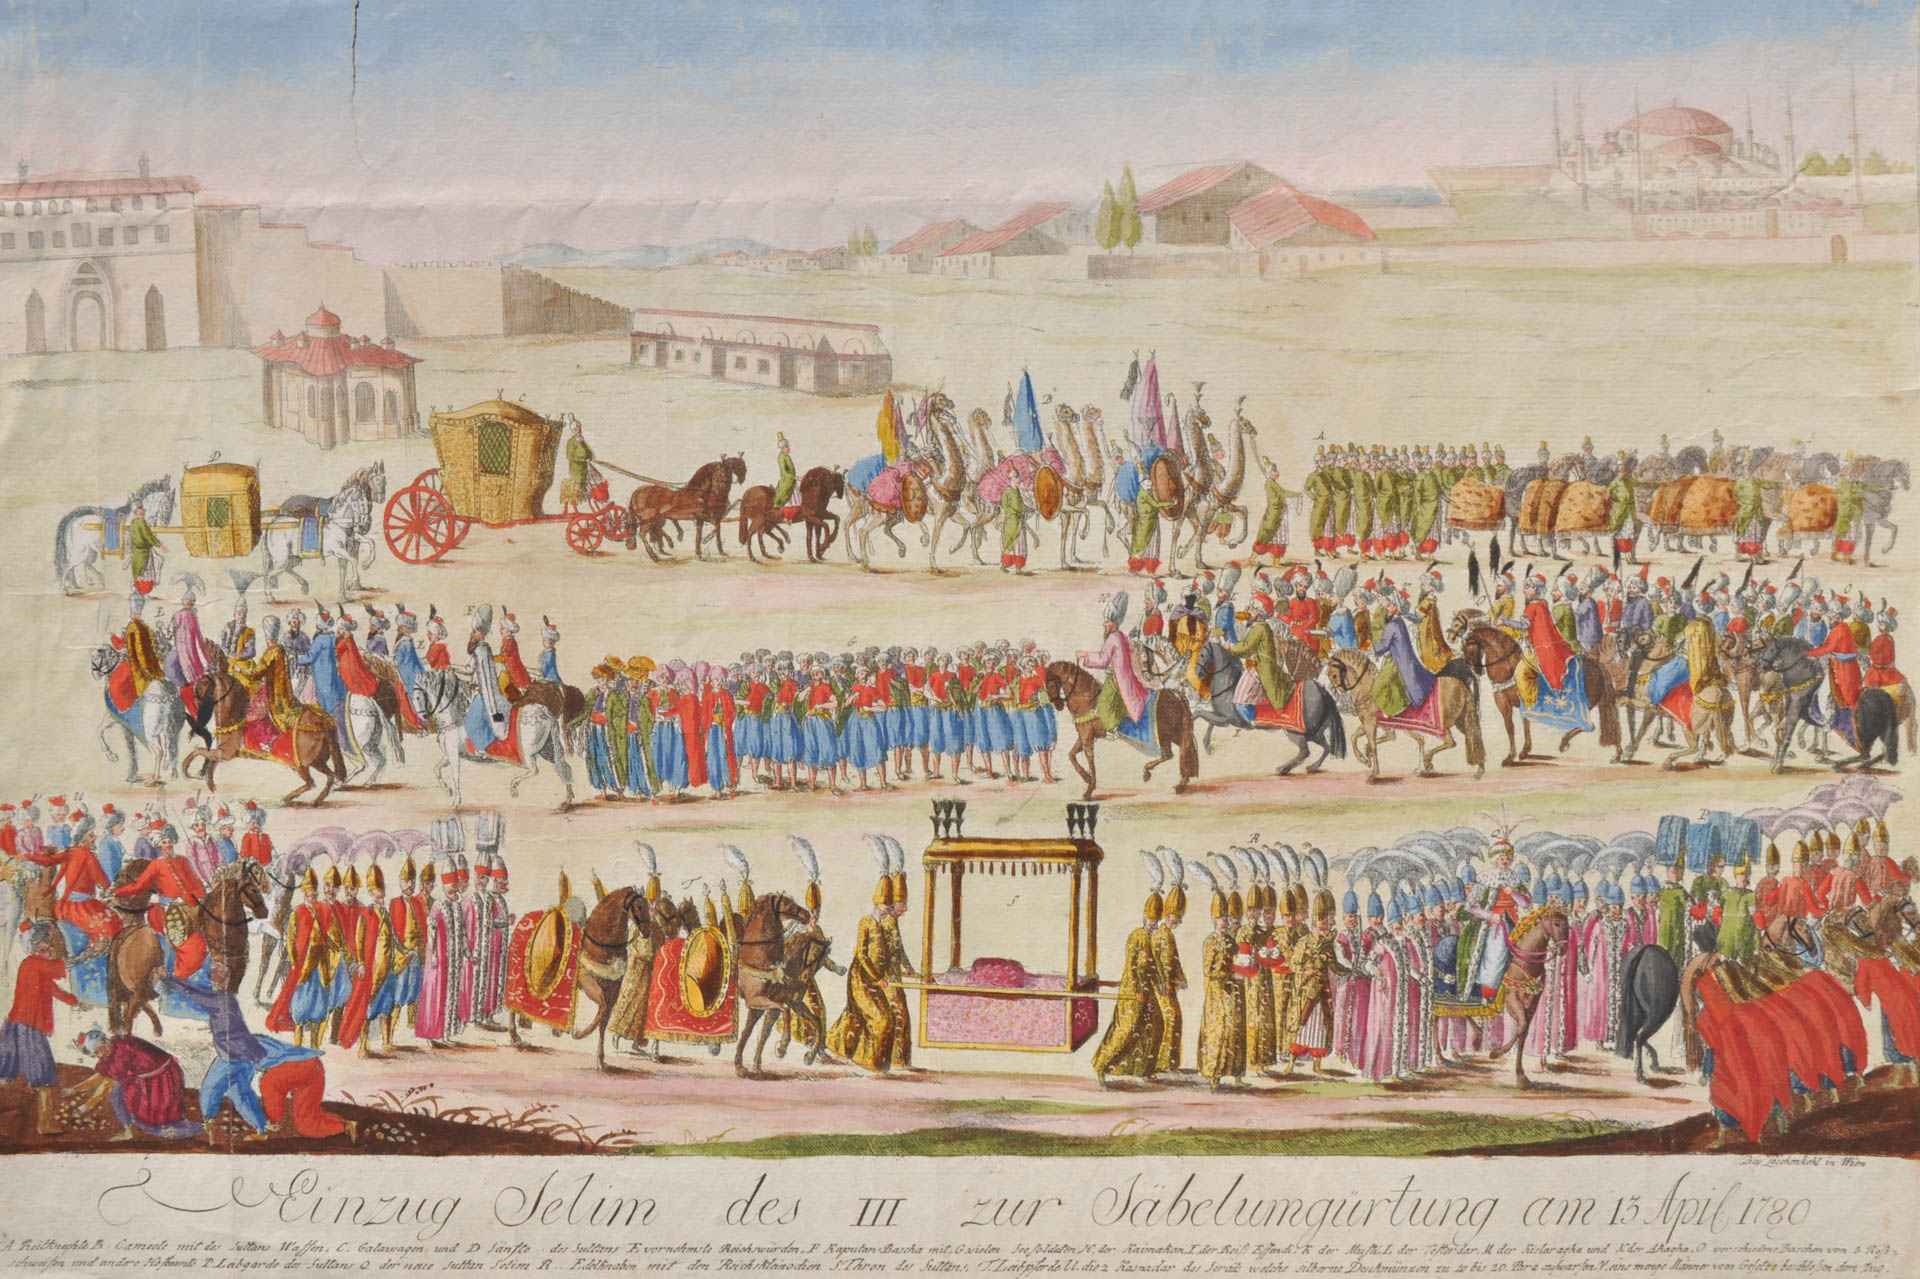 Bey Löschenkohl in Wien
Einzug Selim des III zur Säbelumgürtung am 13 Apil 1789
A Reitknechte B. Cameele mit des Sultans Waffen, C. Galawagen und D Sänfte des Sultans E vornehmste Reichwürden, F Kaputan Bascha mit G vielen Seesoldaten, H. der Kaimakan, I. der Reiß Effendi, K der Mufti, L der Tefterdar, M der Kislaragha und N der Akagha, O verschiedne Baschen von 3 Roß-
schweifen und andere Hofbeamte P. Leibgarde des Sultans Q der neue Sultan Selim R Edelknaben mit den Reichskleinodien S. Thron des Sultans, T. Leibpferde U. die 2 Kasnadar des Serails welche silberne Denkmünzen zu 10 bis 20 Para auswarfen V. eine menge Männer vom Gesetze beschlossen dem Zug.